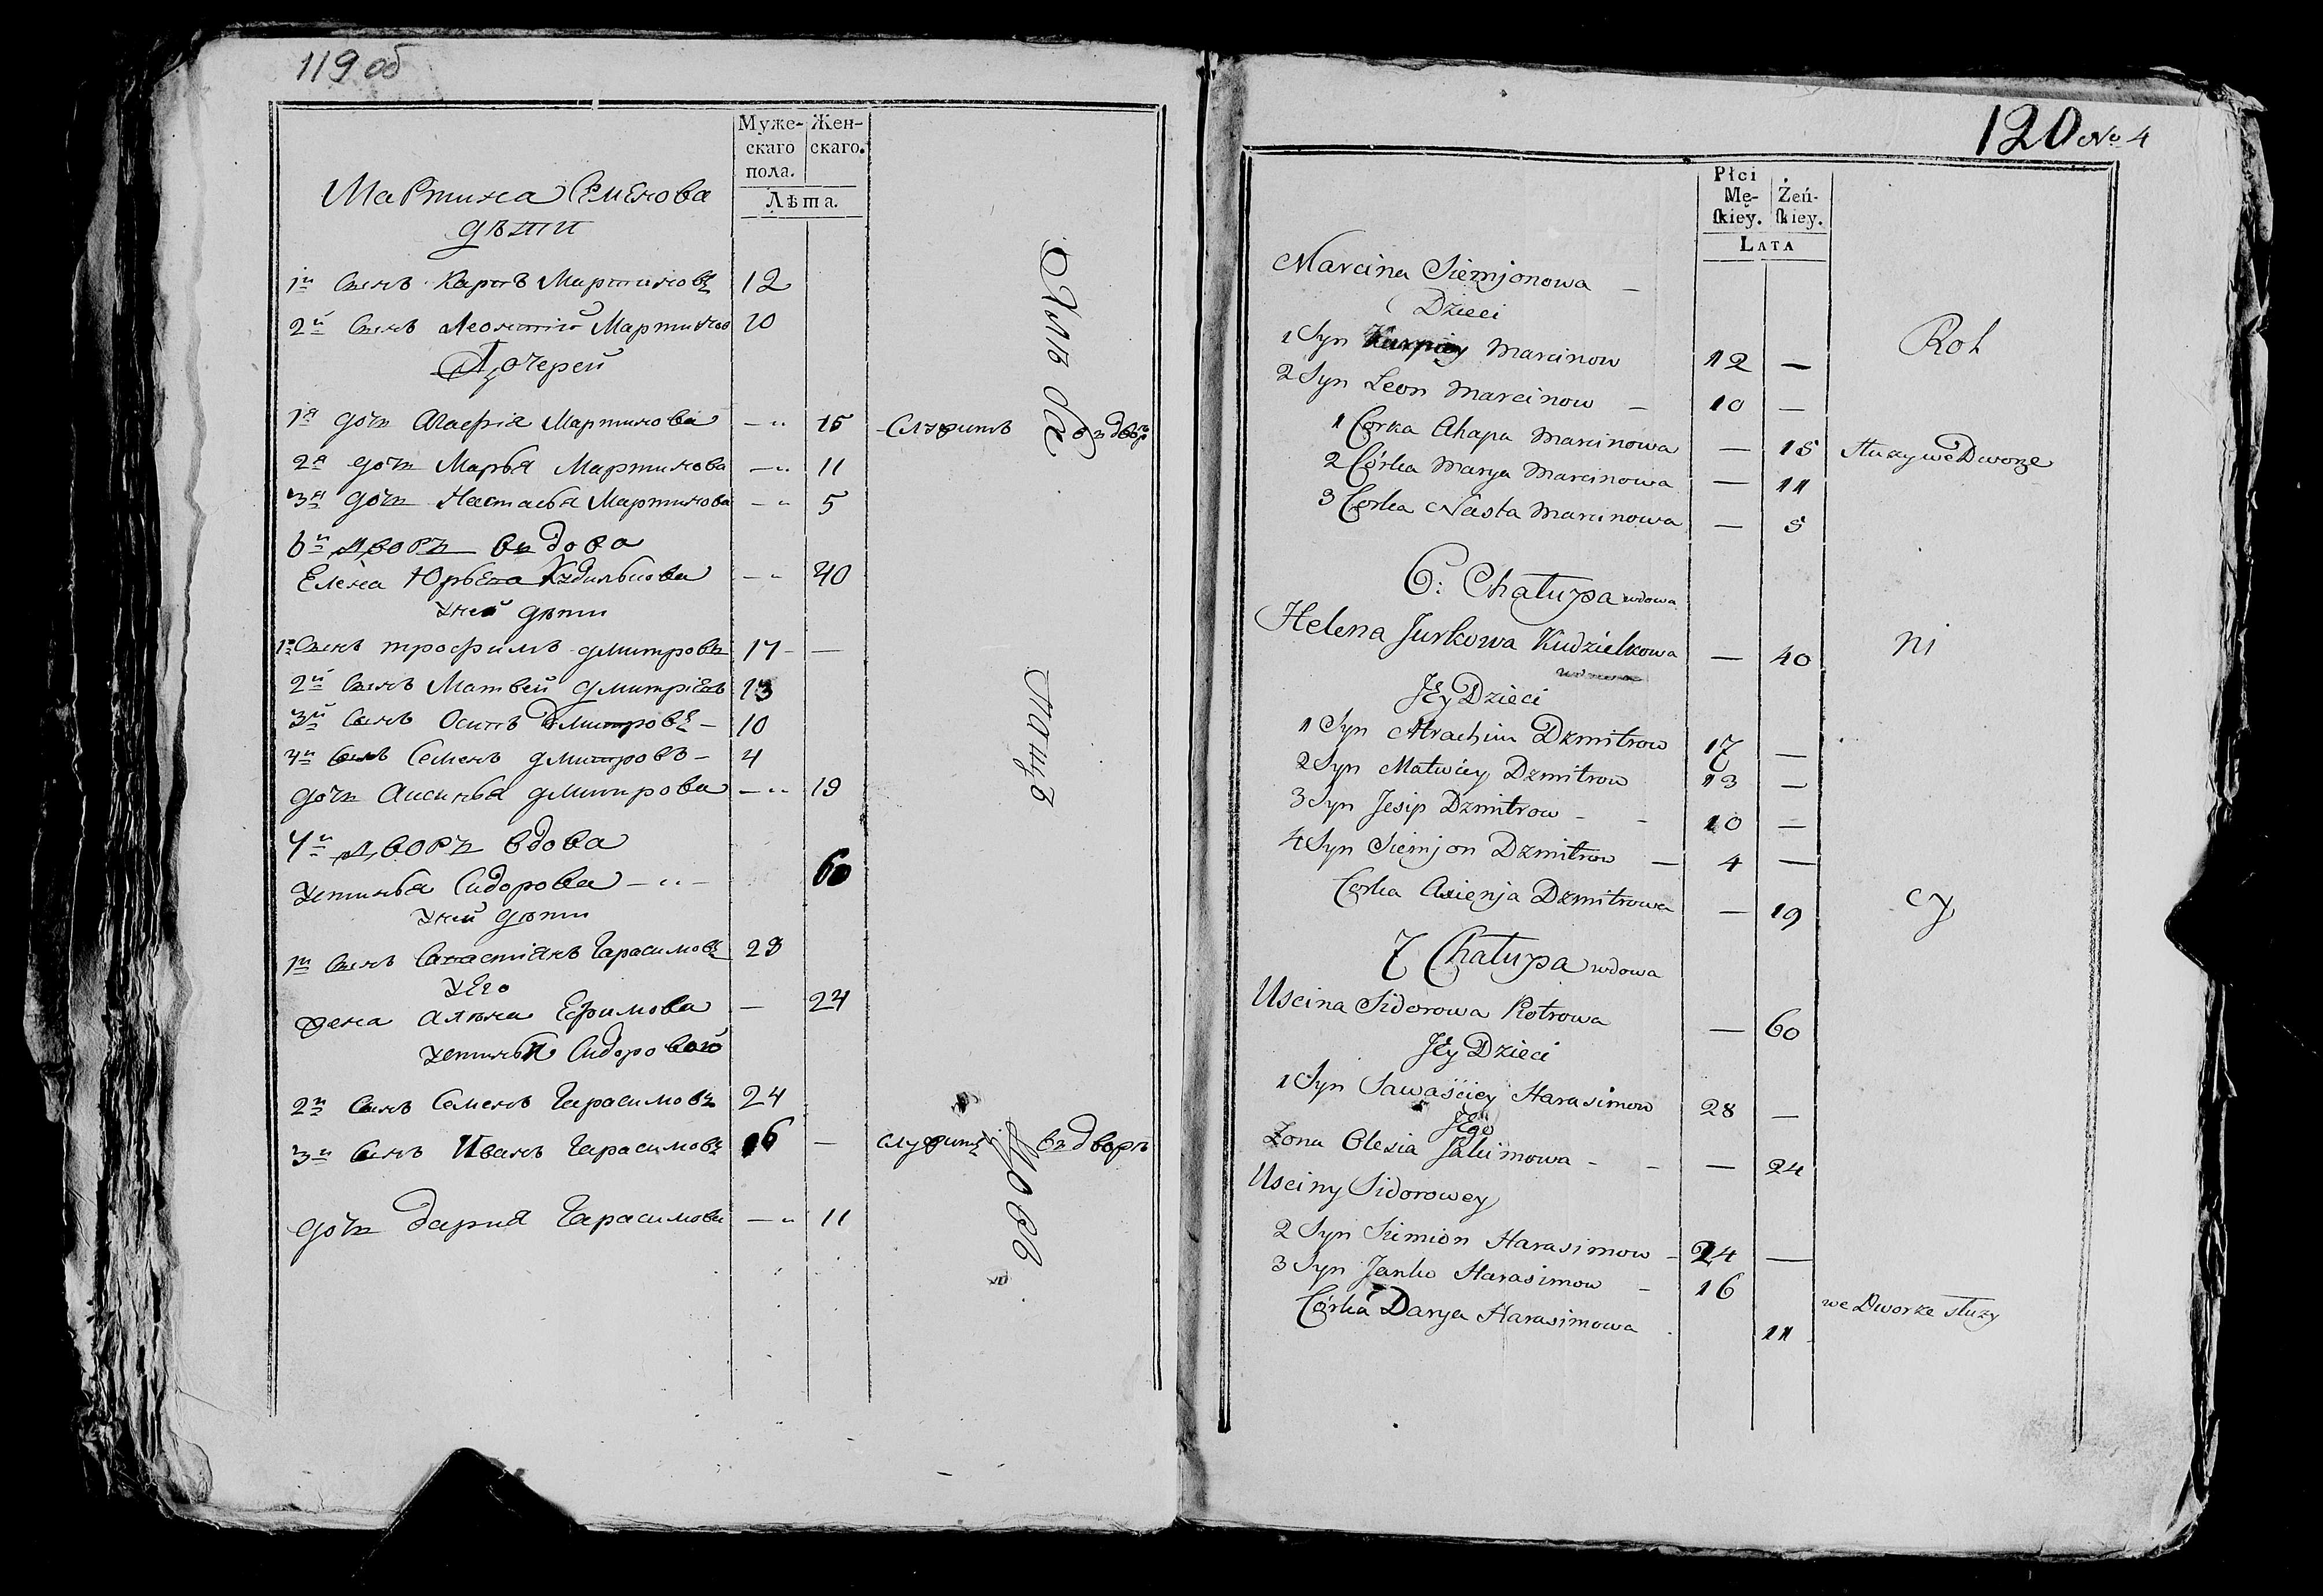 119 об
Муже-
скаго
пола.
Жен-
скаго.
Лѣта.
Мартина Семенова
дѣти
1й Сынъ Карпъ Мартиновъ 12
2й Сынъ Леонтій Мартинов 10
Дочерей
1я дочь Агафія Мартинова — „ 15 служитъ въ дворѣ
2я дочь Марья Мартинова — „ 11
3я дочь Настасья Мартинова — „ 5
6й дворъ вьдова
Елена Юрьева Кудилькова — „ 40
Уней дѣти
1й Сынъ трофимъ дмитровъ 17 —
2й Сынъ Матвей дмитріевъ 13
3й Сынъ Осипъ дмитровъ — 10
4й Сынъ Семенъ дмитровъ — 4
дочь Аксинья дмитрова — „ 19
7й дворъ вдова
Устинья Сидорова — „ — 60
Уней дѣти
1й Сынъ Савастіянъ Гарасимовъ 28
Уего
жена Алѣна Ефимова — 24
Устиньи Сидоровой
2й Сынъ Семенъ Гарасимовъ 24
3й Сынъ Иванъ Гарасимовъ 16 — служитъ въ дворѣ
дочь дария Гарасимова — „ 11
120 № 4
Płci
Mę-
ſkiey.
Żeń-
ſkiey.
Lata
Marcina Siemjonowa —
Dzieci
Roh
1 Syn Marcinow 12 —
2 Syn Leon Marcinow — 10 —
1 Corka Ahapa Marcinowa — 15 Służy we Dworze
2 Córka Marya Marcinowa — 11
3 Corka Nasta Marcinowa — 5
6: Chałupa wdowa
Helena Jurkowa Kudzielkowa — 40
ni
Jey Dzieci
1 Syn Atrachim Dzmitrow 17 —
2 Syn Matwiey Dzmitrow 13 —
3 Syn Jesip Dzmitrow - - 10 —
4 Syn Siemjon Dzmitrow — 4 —
Corka Axienja Dzmitrowa — 19
cy
7 Chałupa wdowa
Uscina Sidorowa Kotrowa — 60
Jey Dzieci
1 Syn Sawaściey Harasimow 28 —
Jego
Zona Olesia Jakimowa - - — 24
Usciny Sidorowey
2 Syn Siemion Harasimow - 24 —
3 Syn Janko Harasimow - 16 we Dworze służy
Córka Darya Harasimowa 11